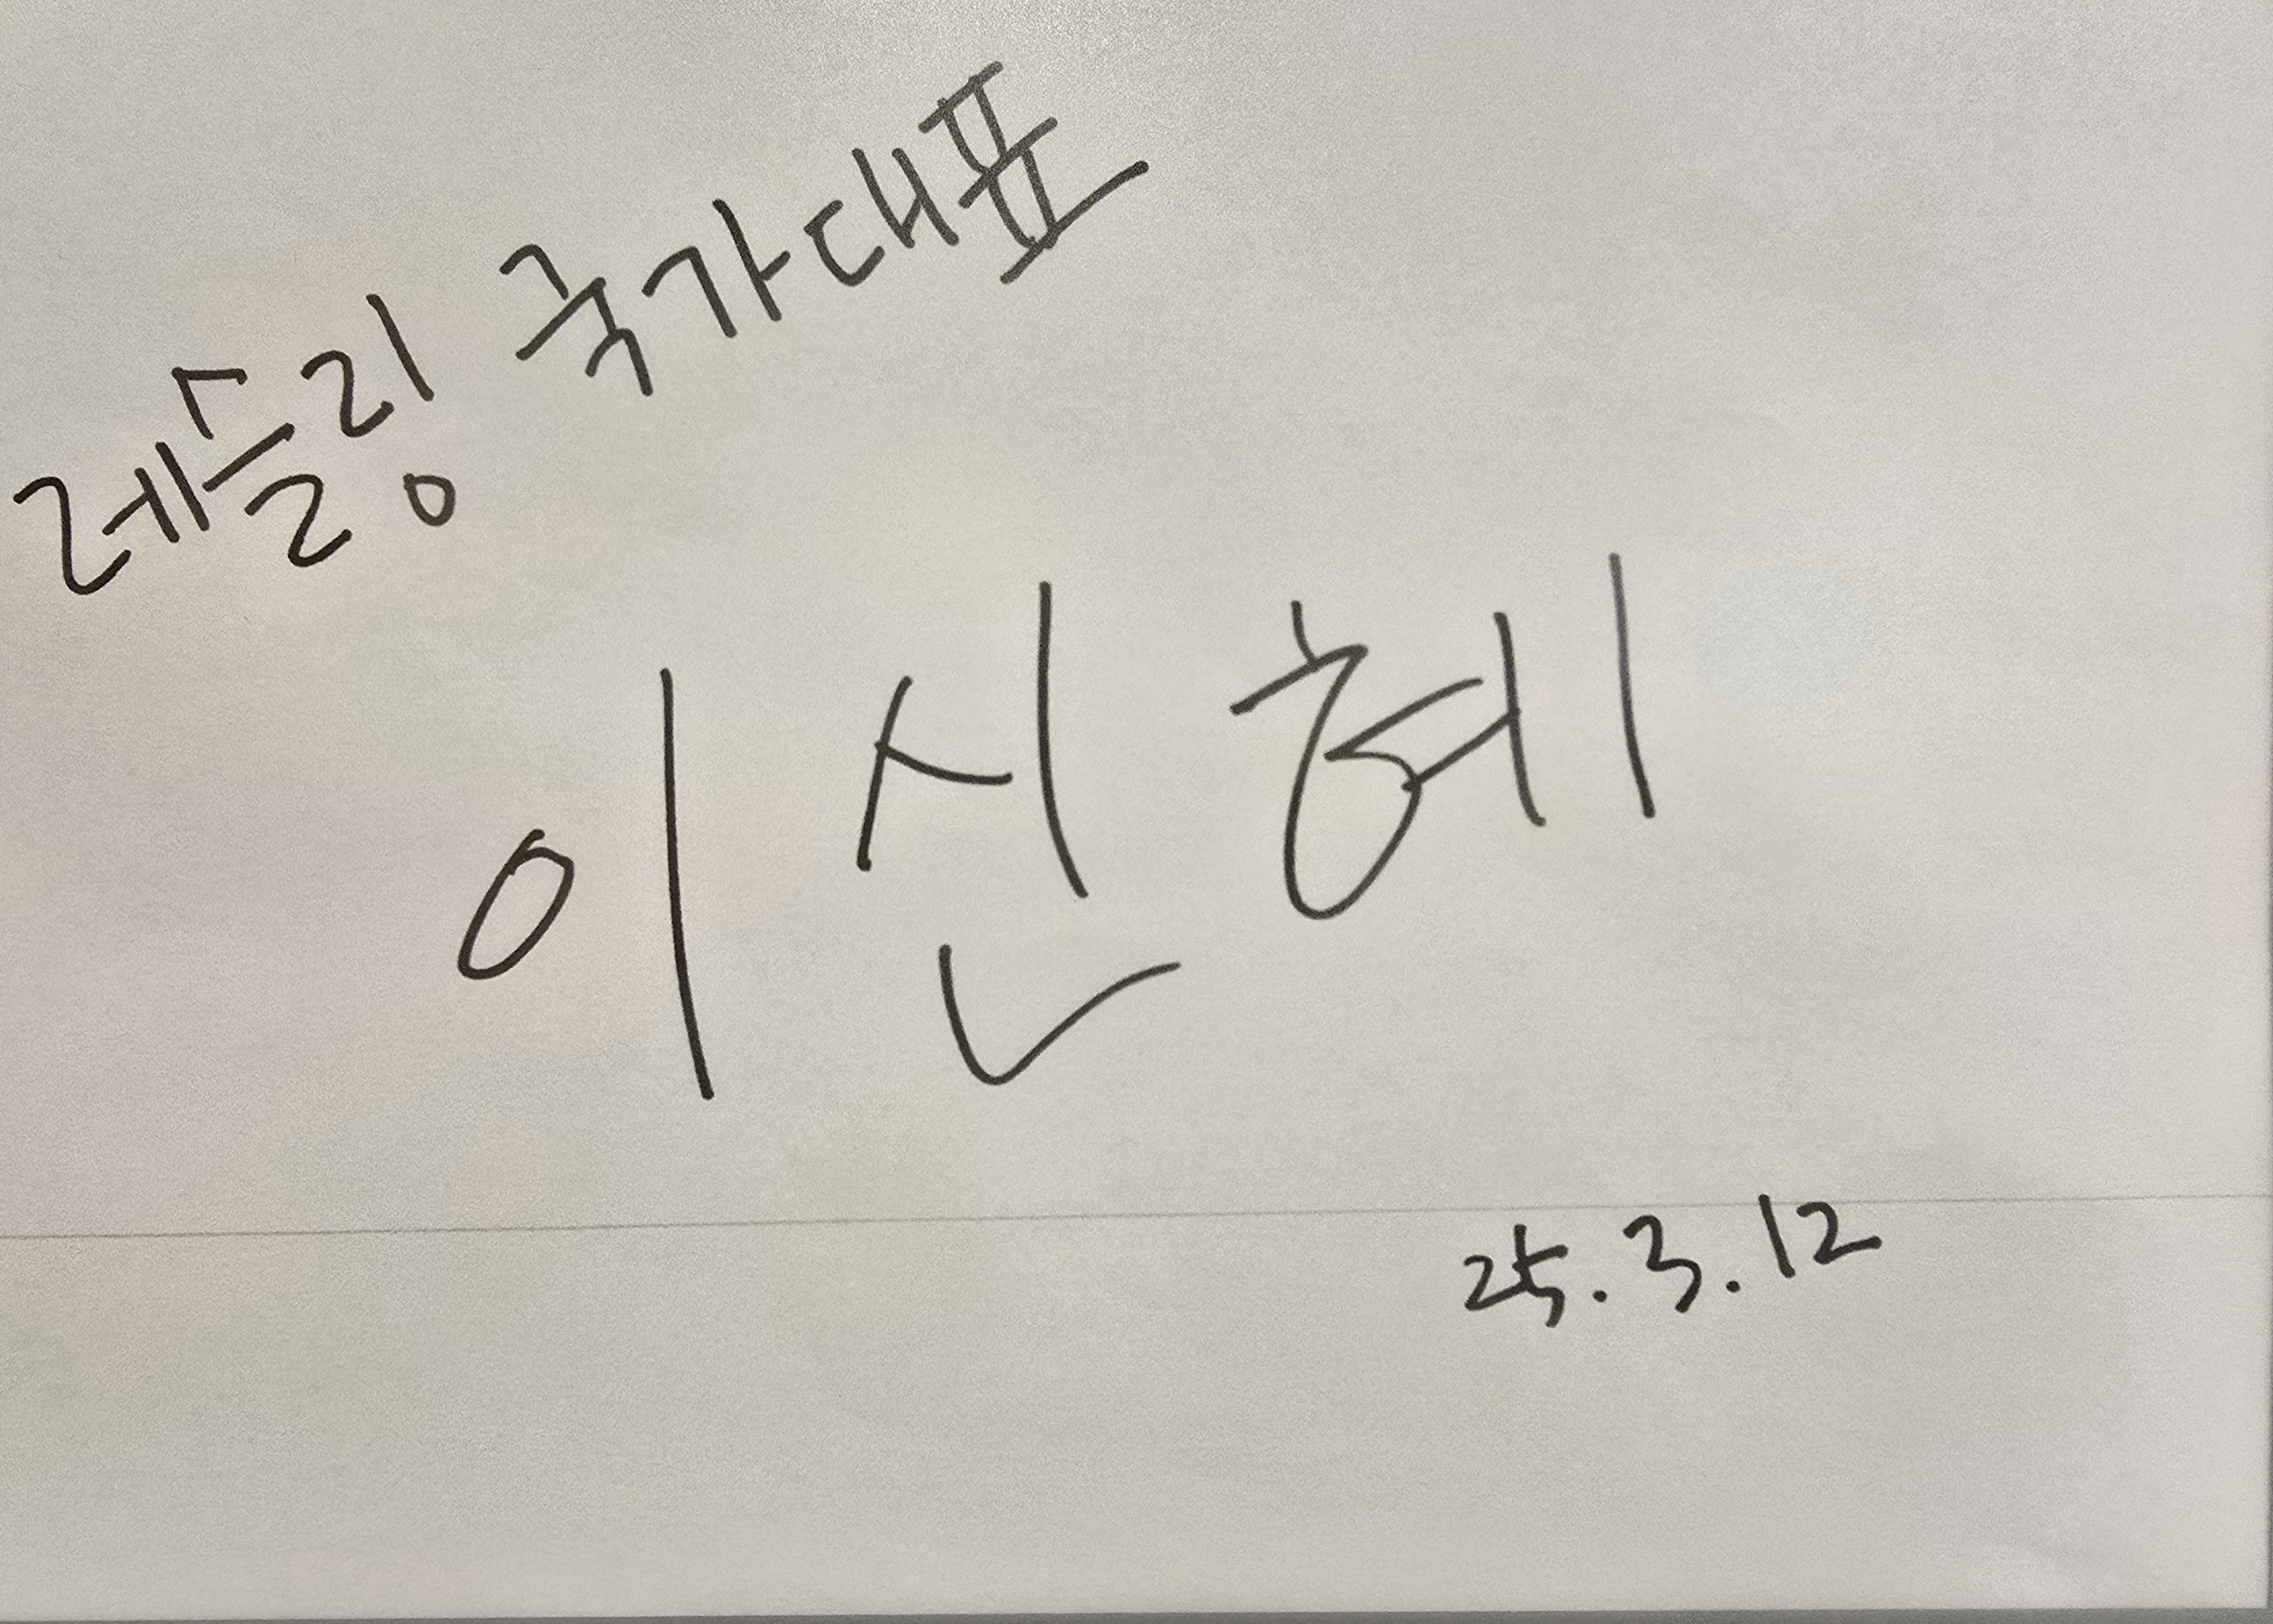 레슬링 국가대표
이신혜
25.3.12